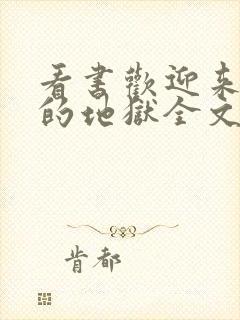 看書歡迎来
的地獄全文
肯都